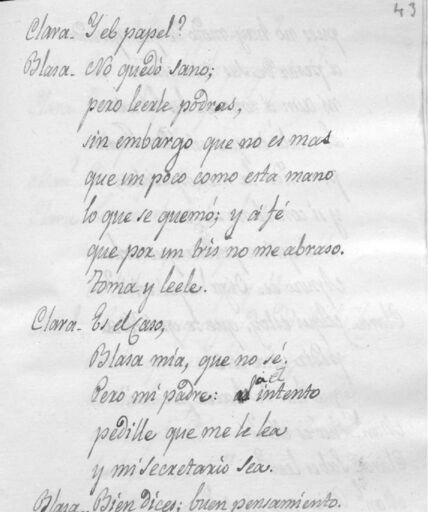 43
Clara- Y el papel?
Blasa- No quedó sano;
pero leerle podras,
sin embargo que no es mas
que un poco como esta mano
lo que se quemó; y á fé
que por un tris no me abraso.
Toma y leele.
Clara- Es el Caso,
Blasa mía, que no sé.
Pero mi padre: á él intento
pedille que me le lea
y mi secretario sea.
Blasa- Bien dices; buen pensamiento.